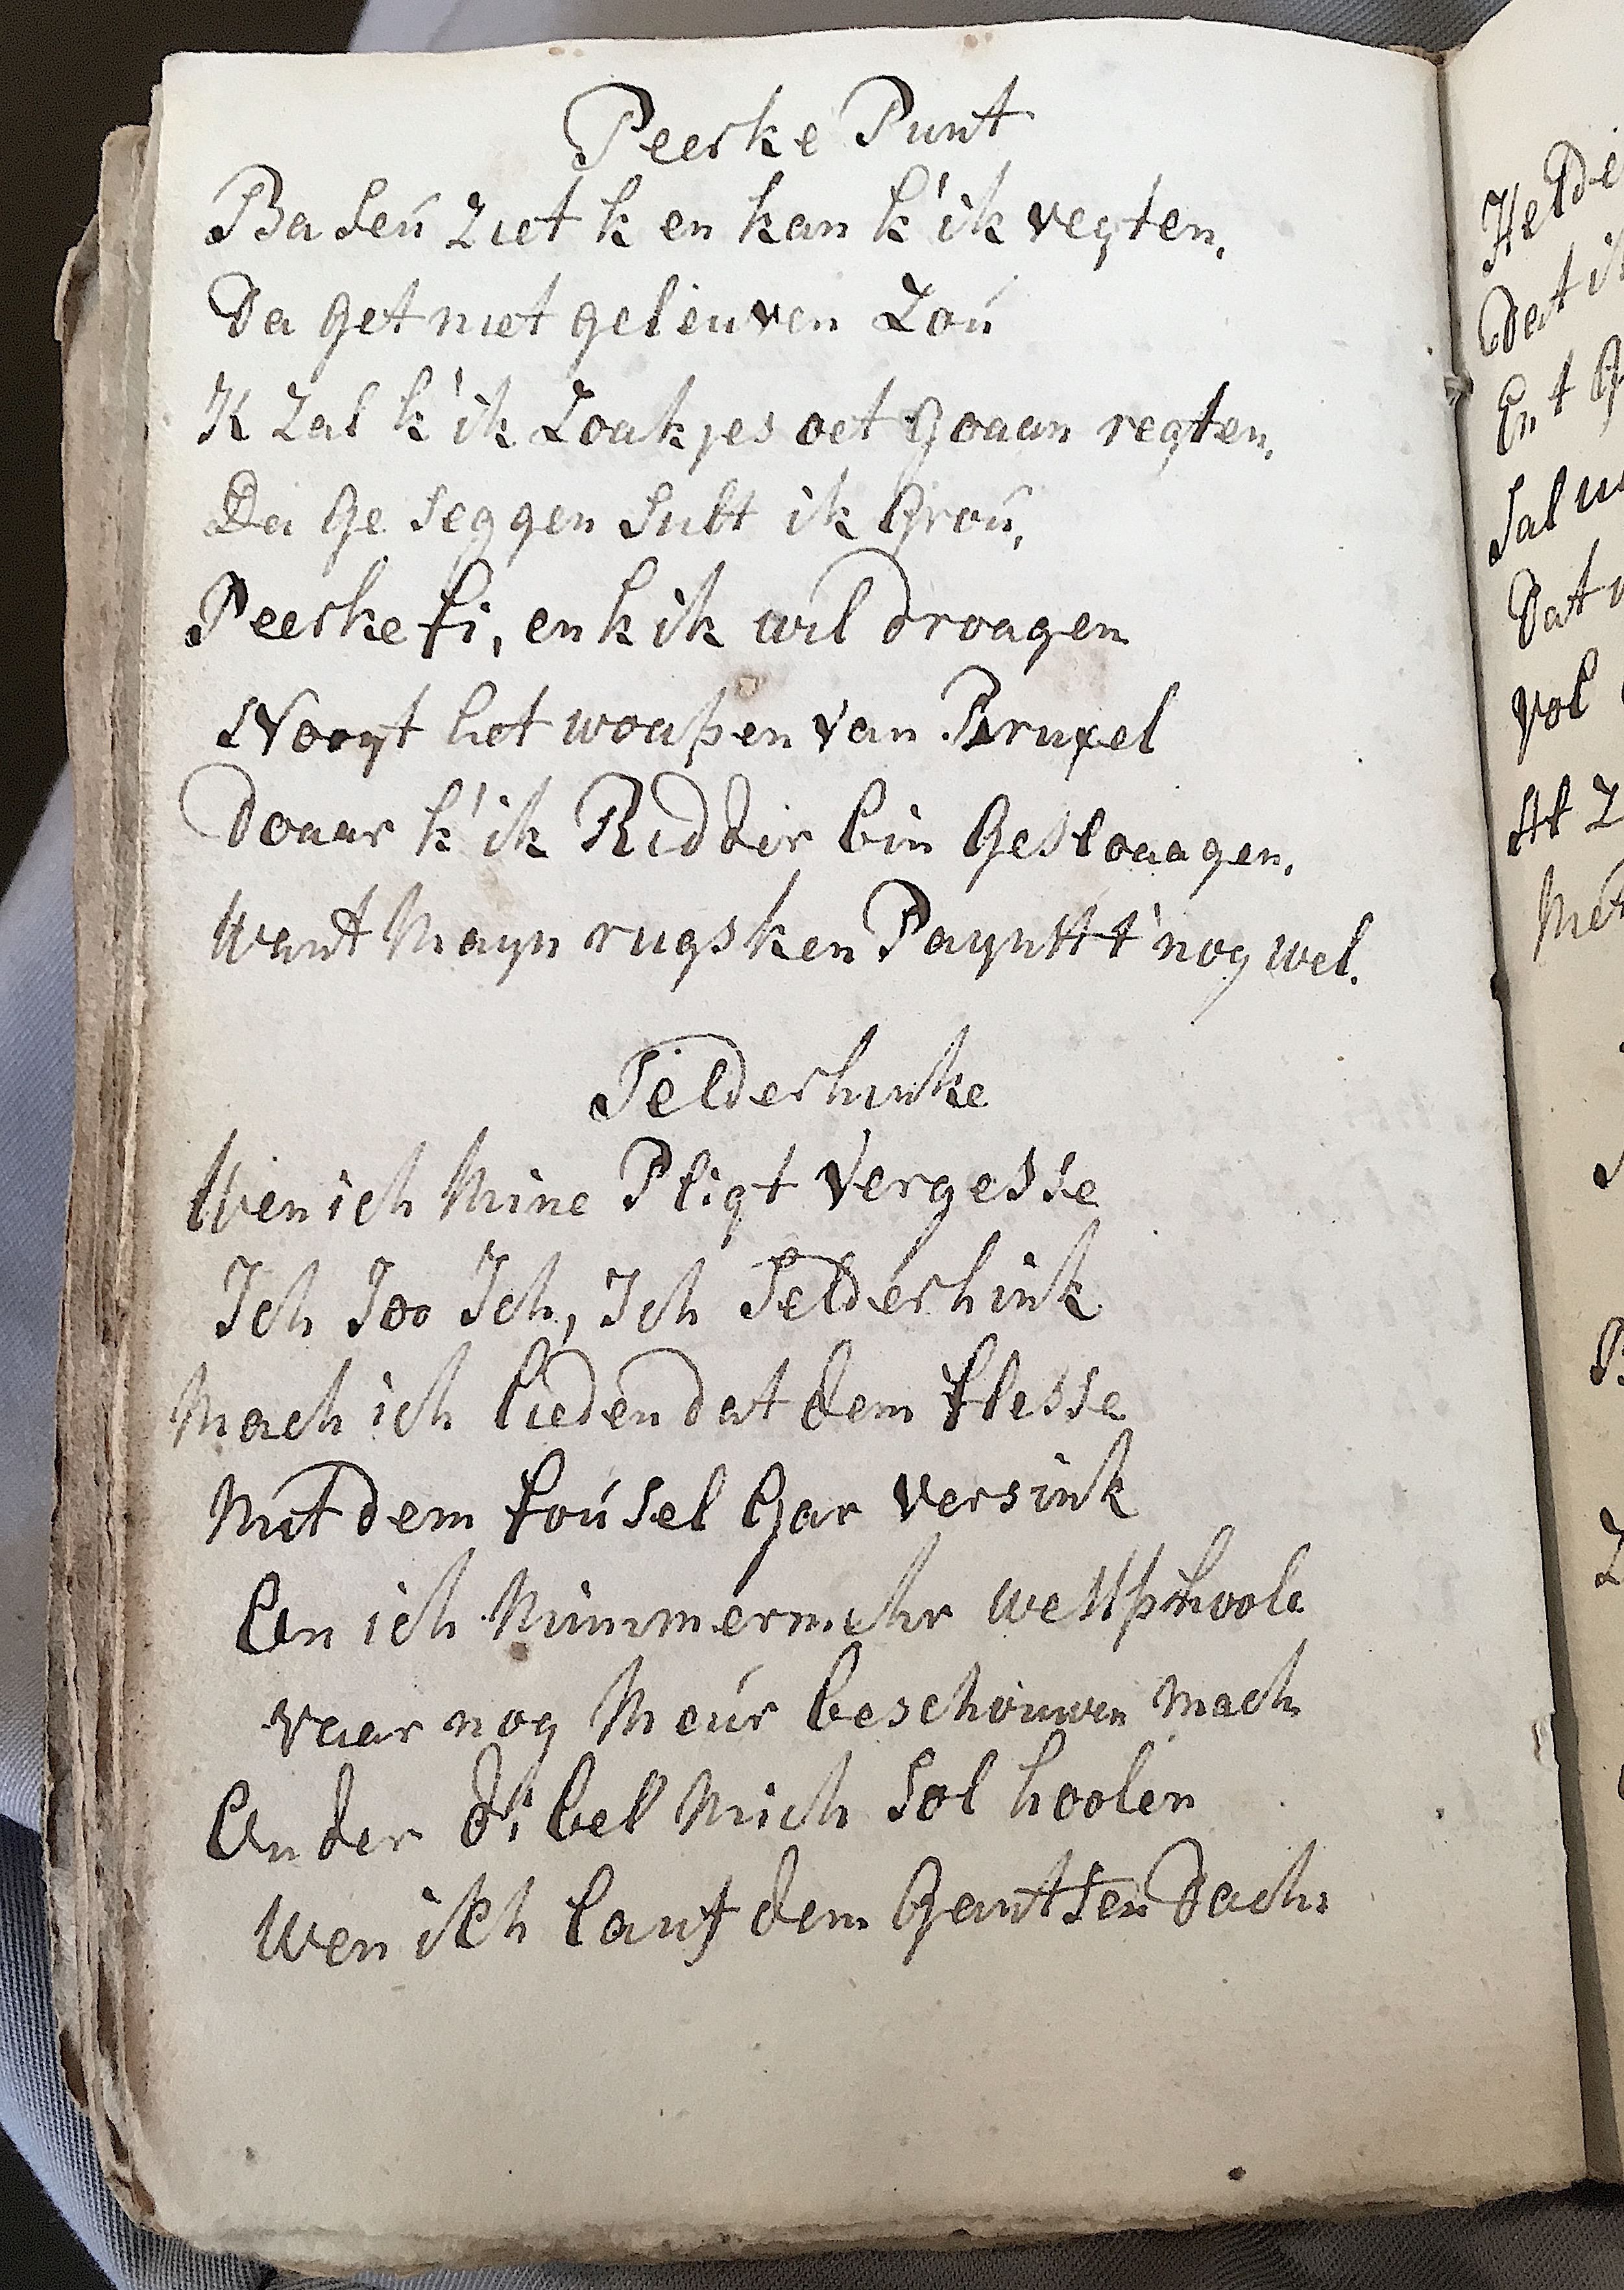 Peerke Punt
Baseú Ziet k en kan k'ik vegten,
Da get niet geleuven Zoú
K Zal k'ik Zoakjes oet goaan regten,
Da Ge seggen Sult ik Groú,
Peerke fi, en k ik wil droagen
Nooyt het woapen van Bruxel
Doaar k'ik Ridder bin Gesloaagen,
Want Mayn rugsken Paynkt' nog wel.
Selderhinke
Wen ich Mine Pligt Vergesse
Ich Joo Ich, Ich Selderhink
Mach ich lieden dat dem flesse
Mit dem foúsel Gar Versink
En ich Nimmermehr westphoole
vaar nog Meúr beschouwen Mach
En der dibel Mich Sol hoolen
Wen ich lauf dem Gantsen Dach:
Helde
Dat ik
En t
Sal
Dat
Vol
At
Met